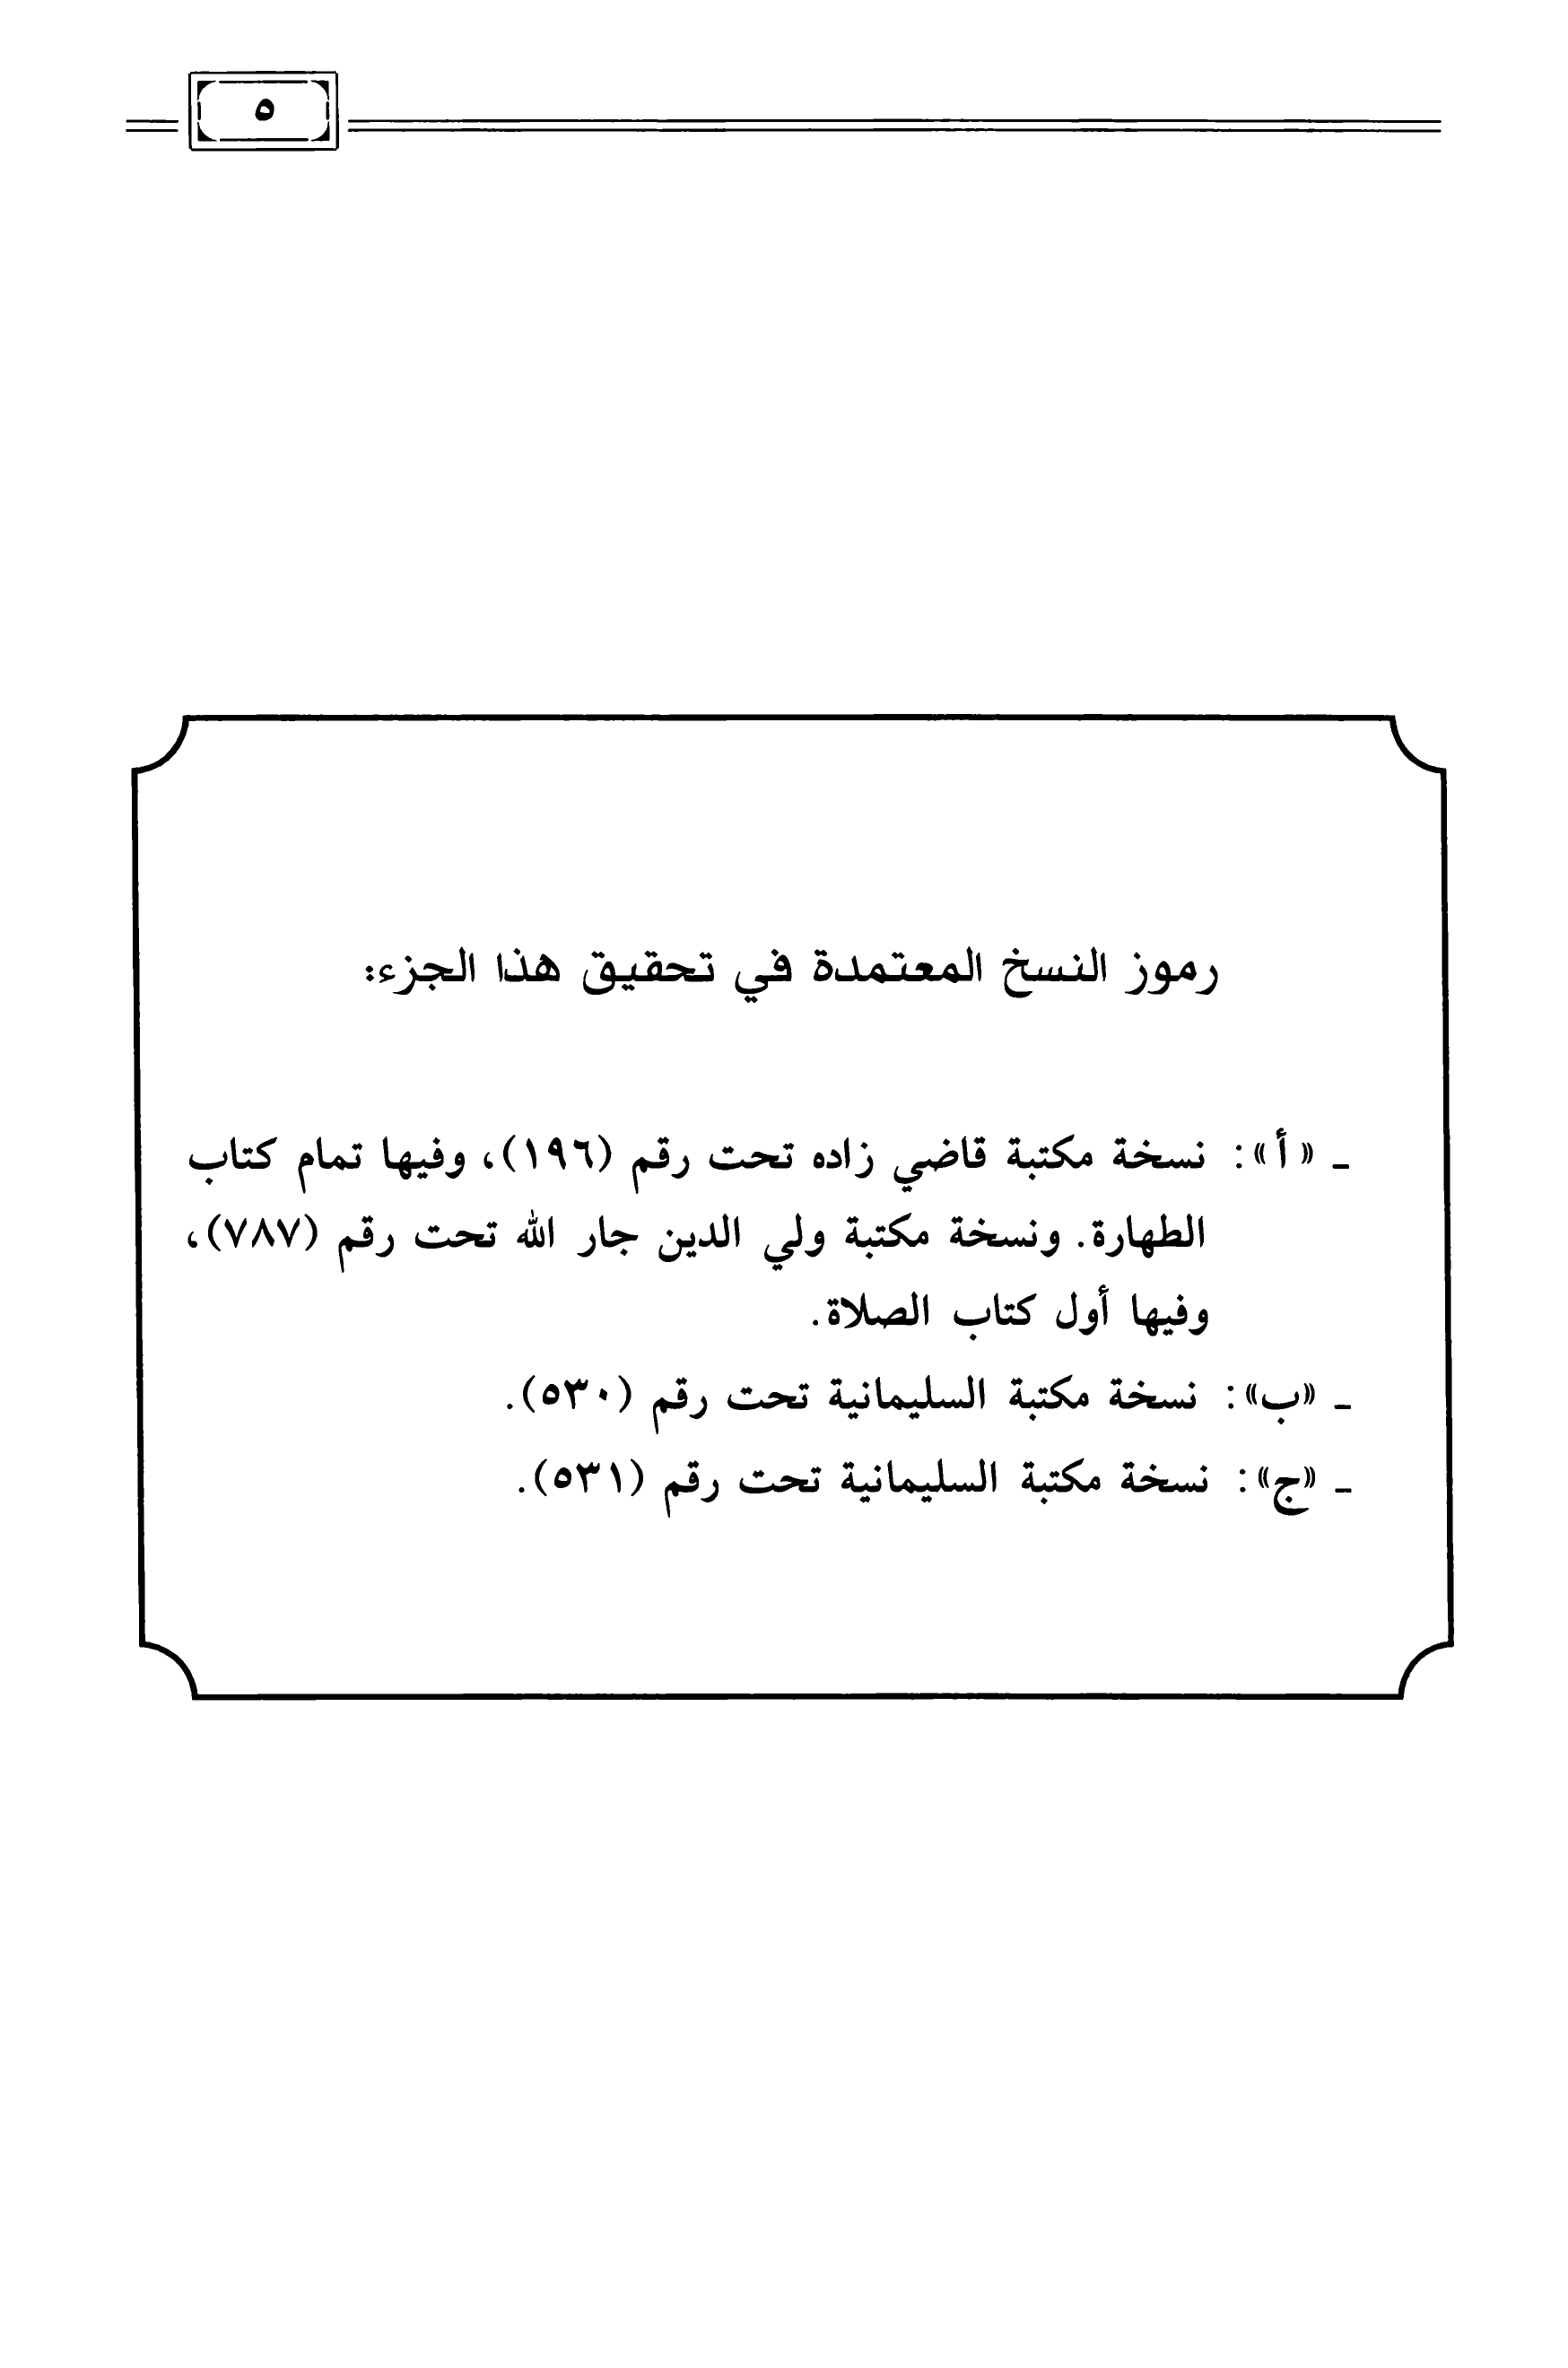 ٥
رموز النسخ المعتمدة في تحقيق هذا الجزء:
ـ «أ»: نسخة مكتبة قاضي زاده تحت رقم (١٩٦)، وفيها تمام كتاب
الطهارة. ونسخة مكتبة ولي الدين جار الله تحت رقم (٧٨٧)،
وفيها أول كتاب الصلاة.
ـ «ب»: نسخة مكتبة السليمانية تحت رقم (٥٣٠).
ـ «ج»: نسخة مكتبة السليمانية تحت رقم (٥٣١).